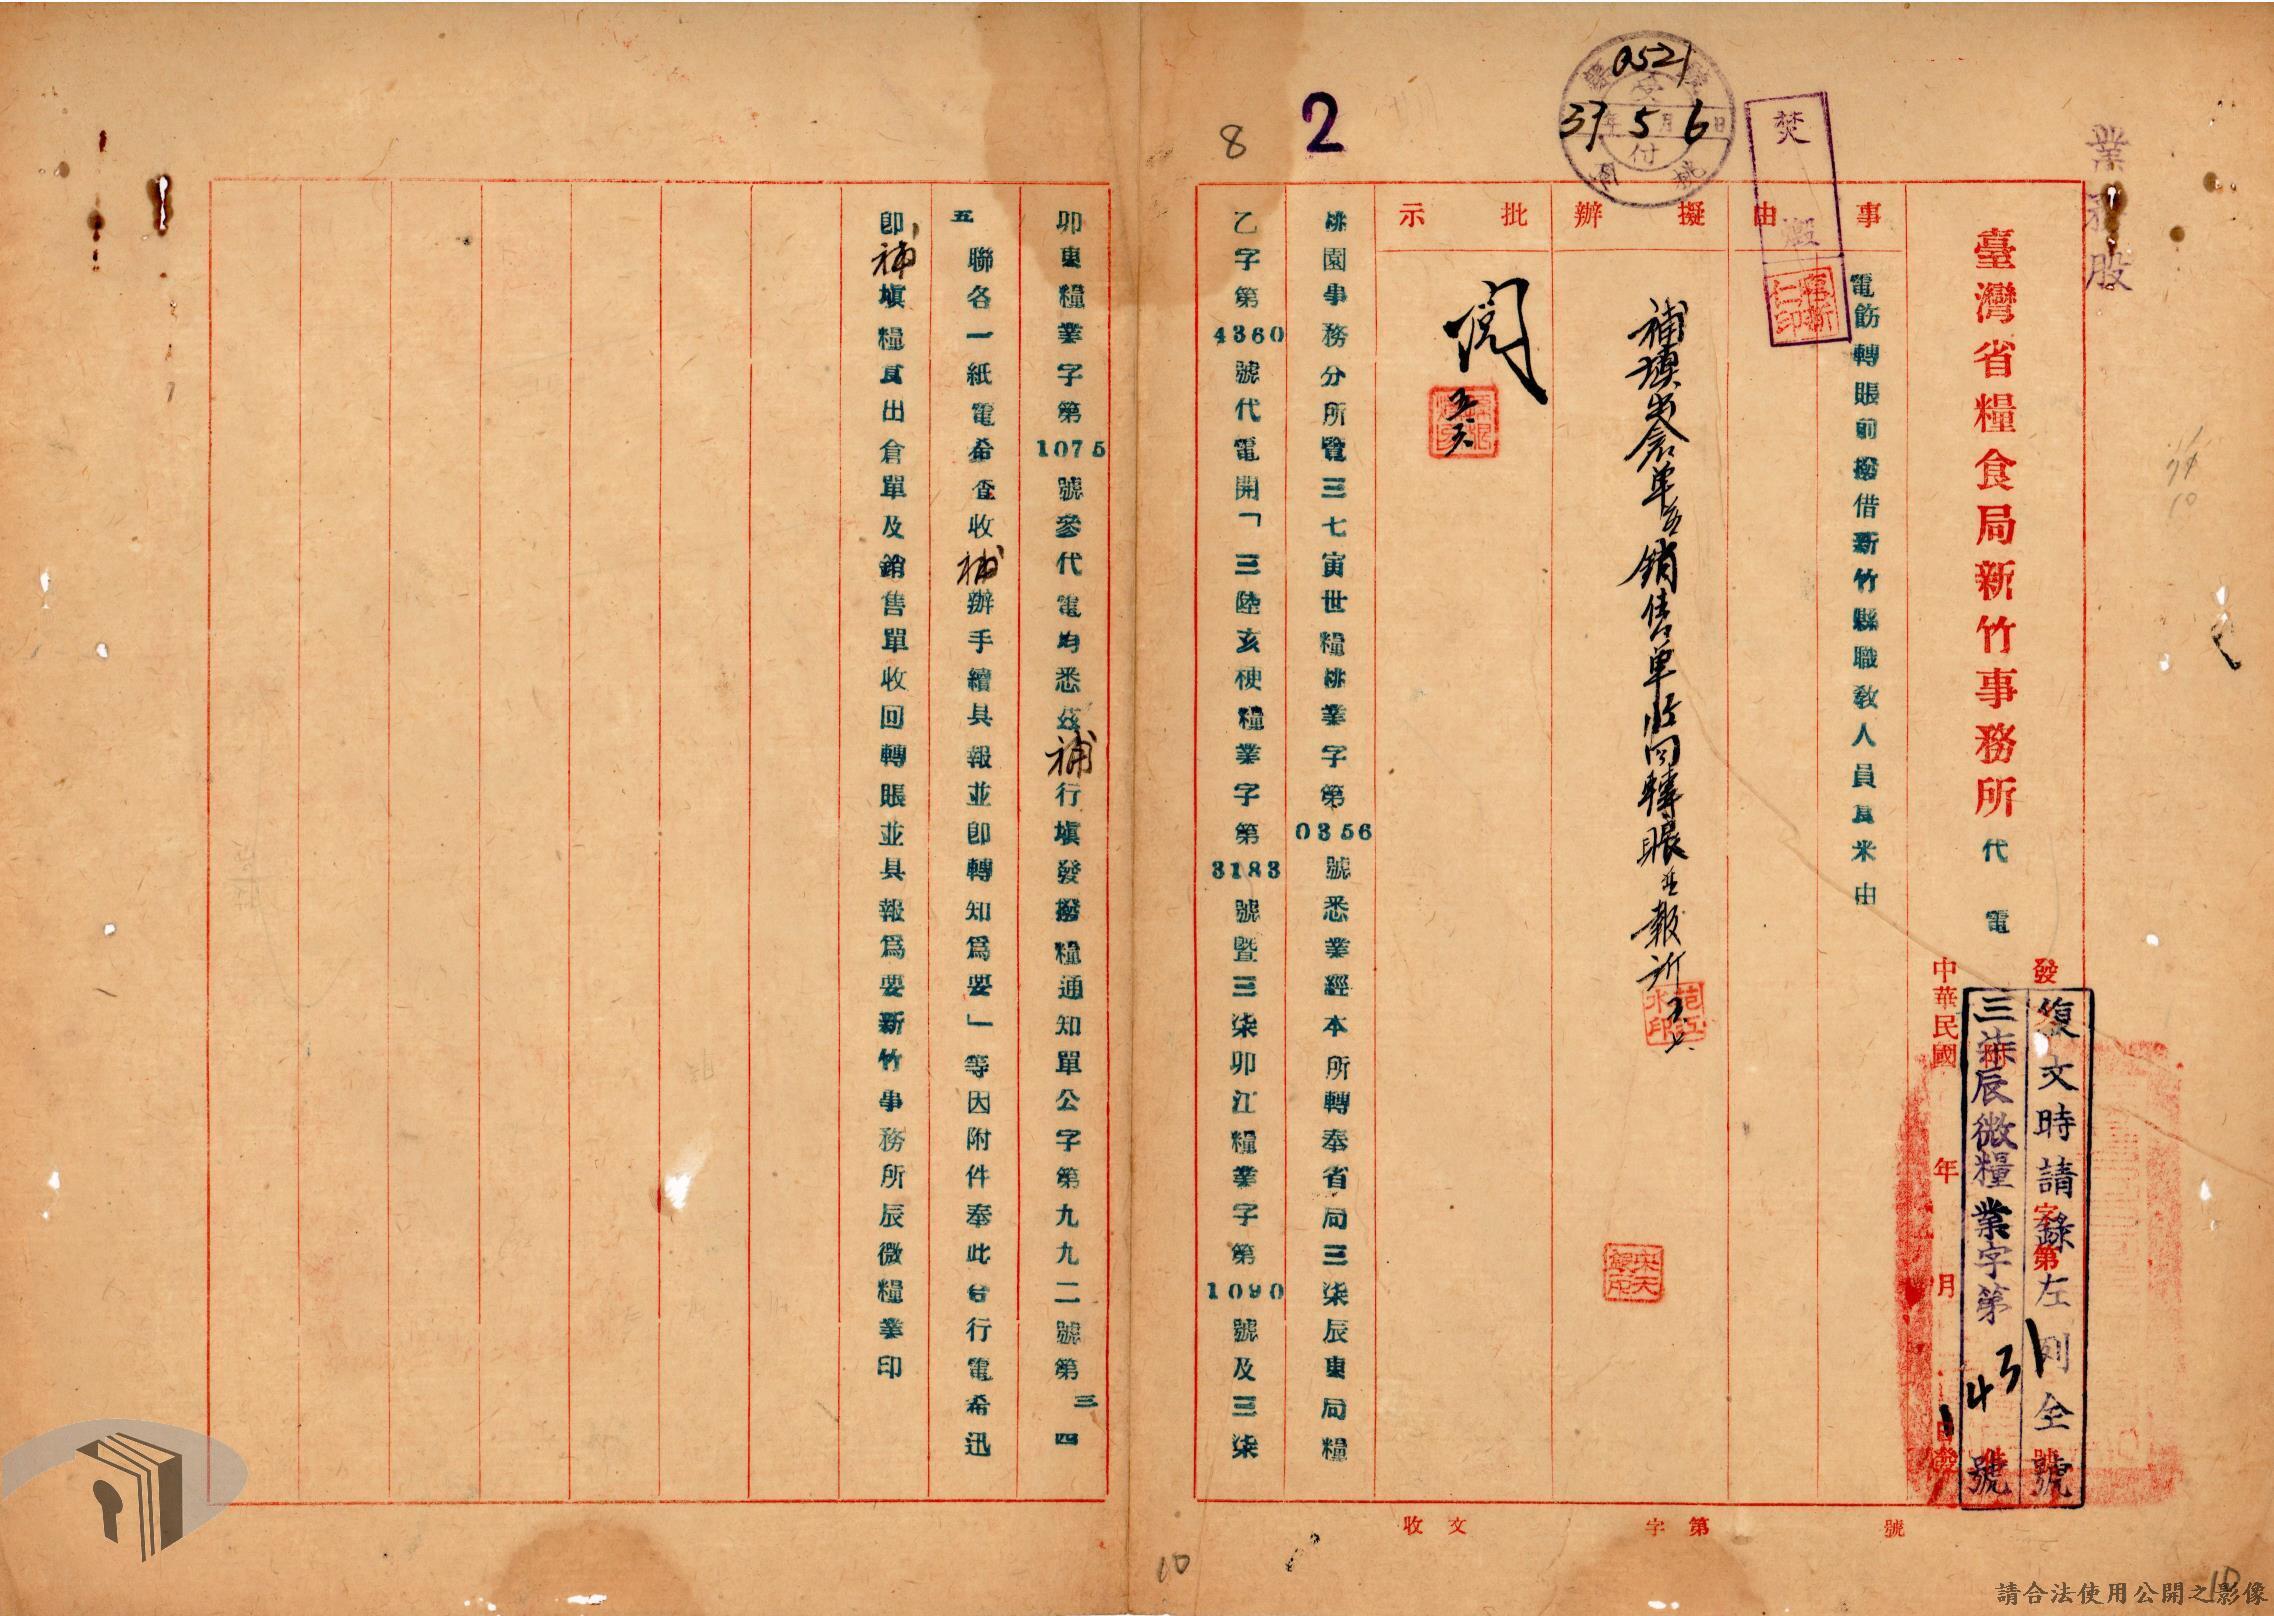 業務股
臺灣省糧食局新竹事務所
代電
發
字第
號
復文時請錄左列全號
三柒辰微糧業字第431號
中華民國
年
月
日發
附
件
事由
電飭轉賬前撥借新竹縣職教人員食米由
焚燬
擬辦
補填出倉單及銷售單收回轉賬並報所
五六
批示
閱
五六
0521
37年5月6日
受付
2
8
桃園事務分所覽三七寅世糧桃業字第0356號悉業經本所轉奉省局三柒辰東局糧
乙字第4360號代電開「三陸亥梗糧業字第3183號暨三柒卯江糧業字第1090號及三柒
卯東糧業字第1075號參代電均悉茲補行填發撥糧通知單公字第九九二號第三四
五聯各一紙電希查收補辦手續具報並卽轉知爲要」等因附件奉此合行電希迅
卽補填糧食出倉單及銷售單收回轉賬並具報爲要新竹事務所辰微糧業印
收文
字第
號
10
10
請合法使用公開之影像